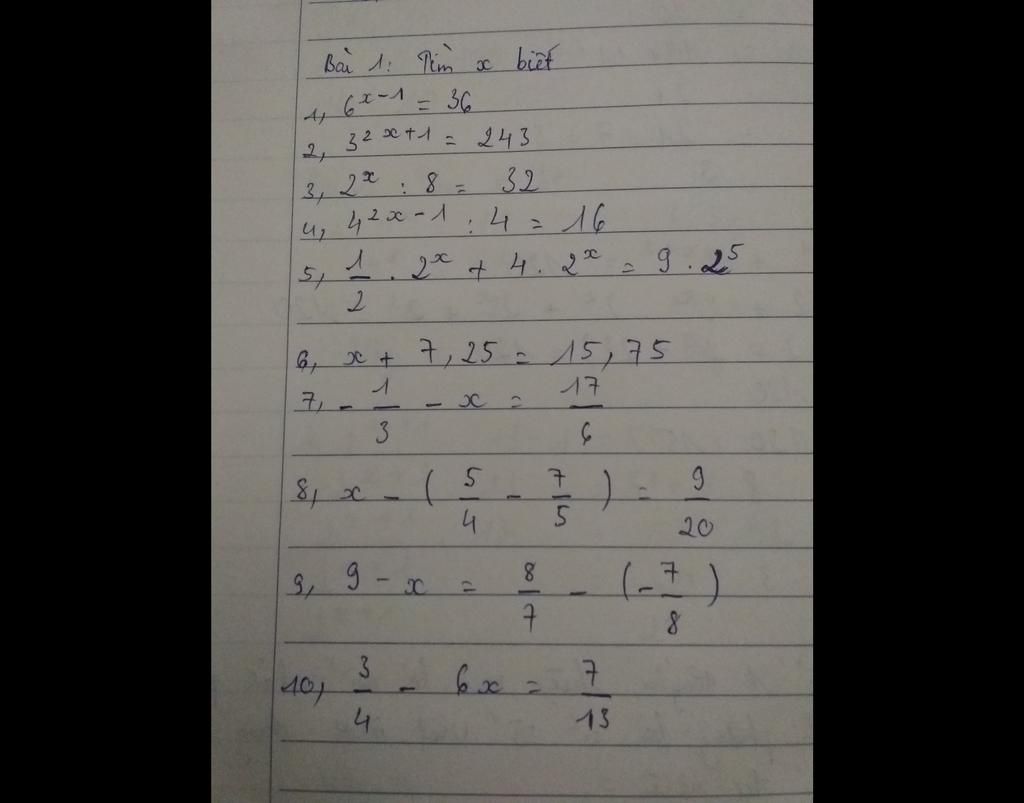 Bài 1: Tìm x biết
1, 6^{x-1} = 36
2, 3^{2x+1} = 243
3, 2^x : 8 = 32
4, 4^{2x-1} : 4 = 16
5, \frac{1}{2} . 2^x + 4 . 2^x = 9 . 2^5
6, x + 7,25 = 15,75
7, -\frac{1}{3} - x = \frac{17}{6}
8, x - (\frac{5}{4} - \frac{7}{5}) = \frac{9}{20}
9, 9 - x = \frac{8}{7} - (-\frac{7}{8})
10, \frac{3}{4} - 6x = \frac{7}{13}